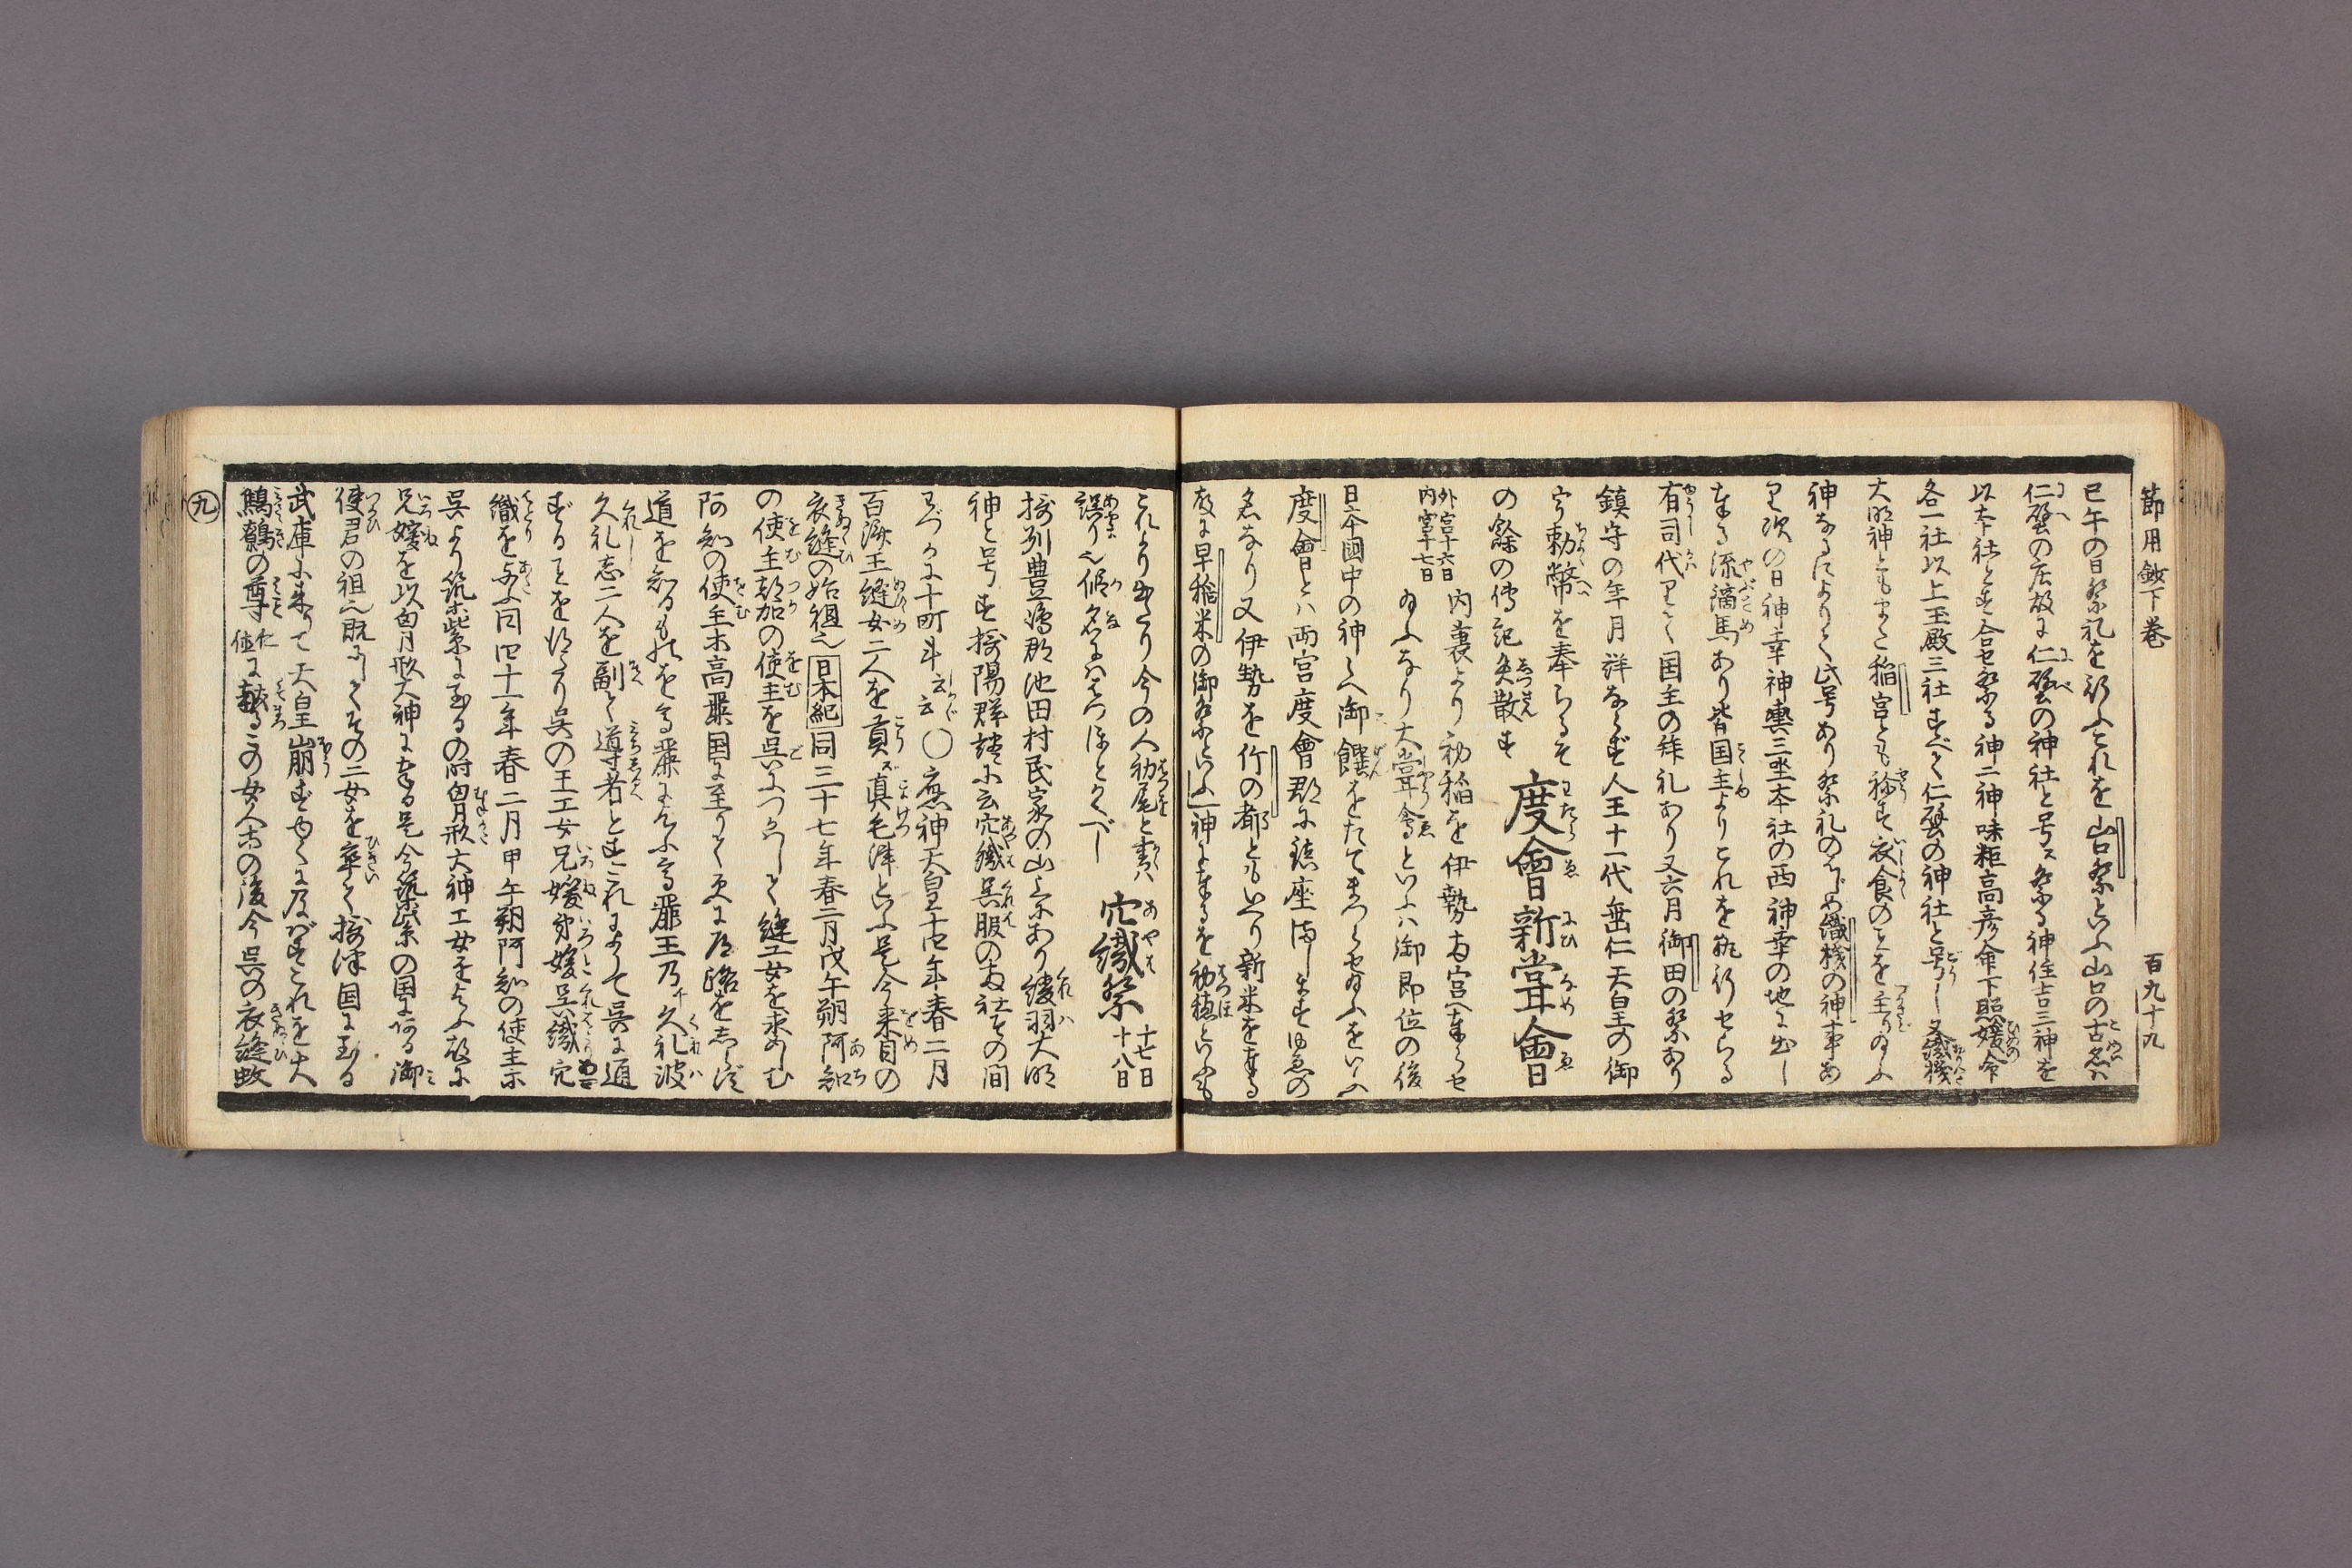 節用敘下巻 百九十九
巳午の日祭礼を行ふこれを山口祭といふ山口の古名ハ
仁壁の庄故に仁壁の神社と号ス祭る神住吉三神を
以本社とす合せ祭る神二神味耜高彦命下照媛命
各一社以上玉殿三社すべて仁壁の神社と号し又織機
大明神ともまた稲宮とも称す衣食のことを主り給ふ
神なるによりて此号あり祭礼のはじめ織機の神事あ
り次の日神幸神輿三坐本社の西神幸の地に出し
奉る流滴馬あり皆国主よりこれを執行せらる
有司代りて国主の拝礼あり又六月御田の祭あり
鎮守の年月詳ならず人王十一代垂仁天皇の御
宇勅幣を奉らるそ
の餘の傳記失散す 度會新嘗會
外宮十六日 内宮十七日 内裏より初稲を伊勢両宮へ奉らせ
給ふなり大嘗會といふハ御即位の後
日本國中の神々へ御饌をたてまつらせ給ふをいふ
度會とハ両宮度會郡に鎮座ましますゆゑの
名なり又伊勢を竹の都ともいへり新米を奉る
故に早稲米の御祭といふ神に奉るを初穂といふも
これより出たり今の人初尾と書ハ
誤り也仮名にハはつほとかくべし 穴織祭 十七日 十八日
摂州豊嶋郡池田村民家の山上にあり綾羽大明
神と号す摂陽群談に云穴織呉服の両社その間
わづかに十町斗云云〇應神天皇十四年春二月
百濟王縫女二人を貢ズ真毛津といふ是今来目の
衣縫の始祖也日本紀同三十七年春二月戊午朔阿知
の使主都加の使主を呉につかハして縫工女を求めしむ
阿知の使主木高麗国に至りて更に道路をしらず
道を知るものを高麗にこふ高麗王乃チ久礼波
久礼志二人を副て導者とすこれによりて呉に通
ずることを得たり呉の王工女兄媛弟媛呉織穴
織を与ふ同四十一年春二月甲午朔阿知の使主等
呉より筑紫に至るの時胸形大神工女をこふ故に
兄媛を以胸形大神に奉る是今筑紫の国にある御
使君の祖也既にしてその二女を率て摂津国に至る
武庫に来りて天皇崩ずゆくに及バずこれを大
鷦鷯の尊仁徳に献るこの女人等の後今呉の衣縫蚊
九